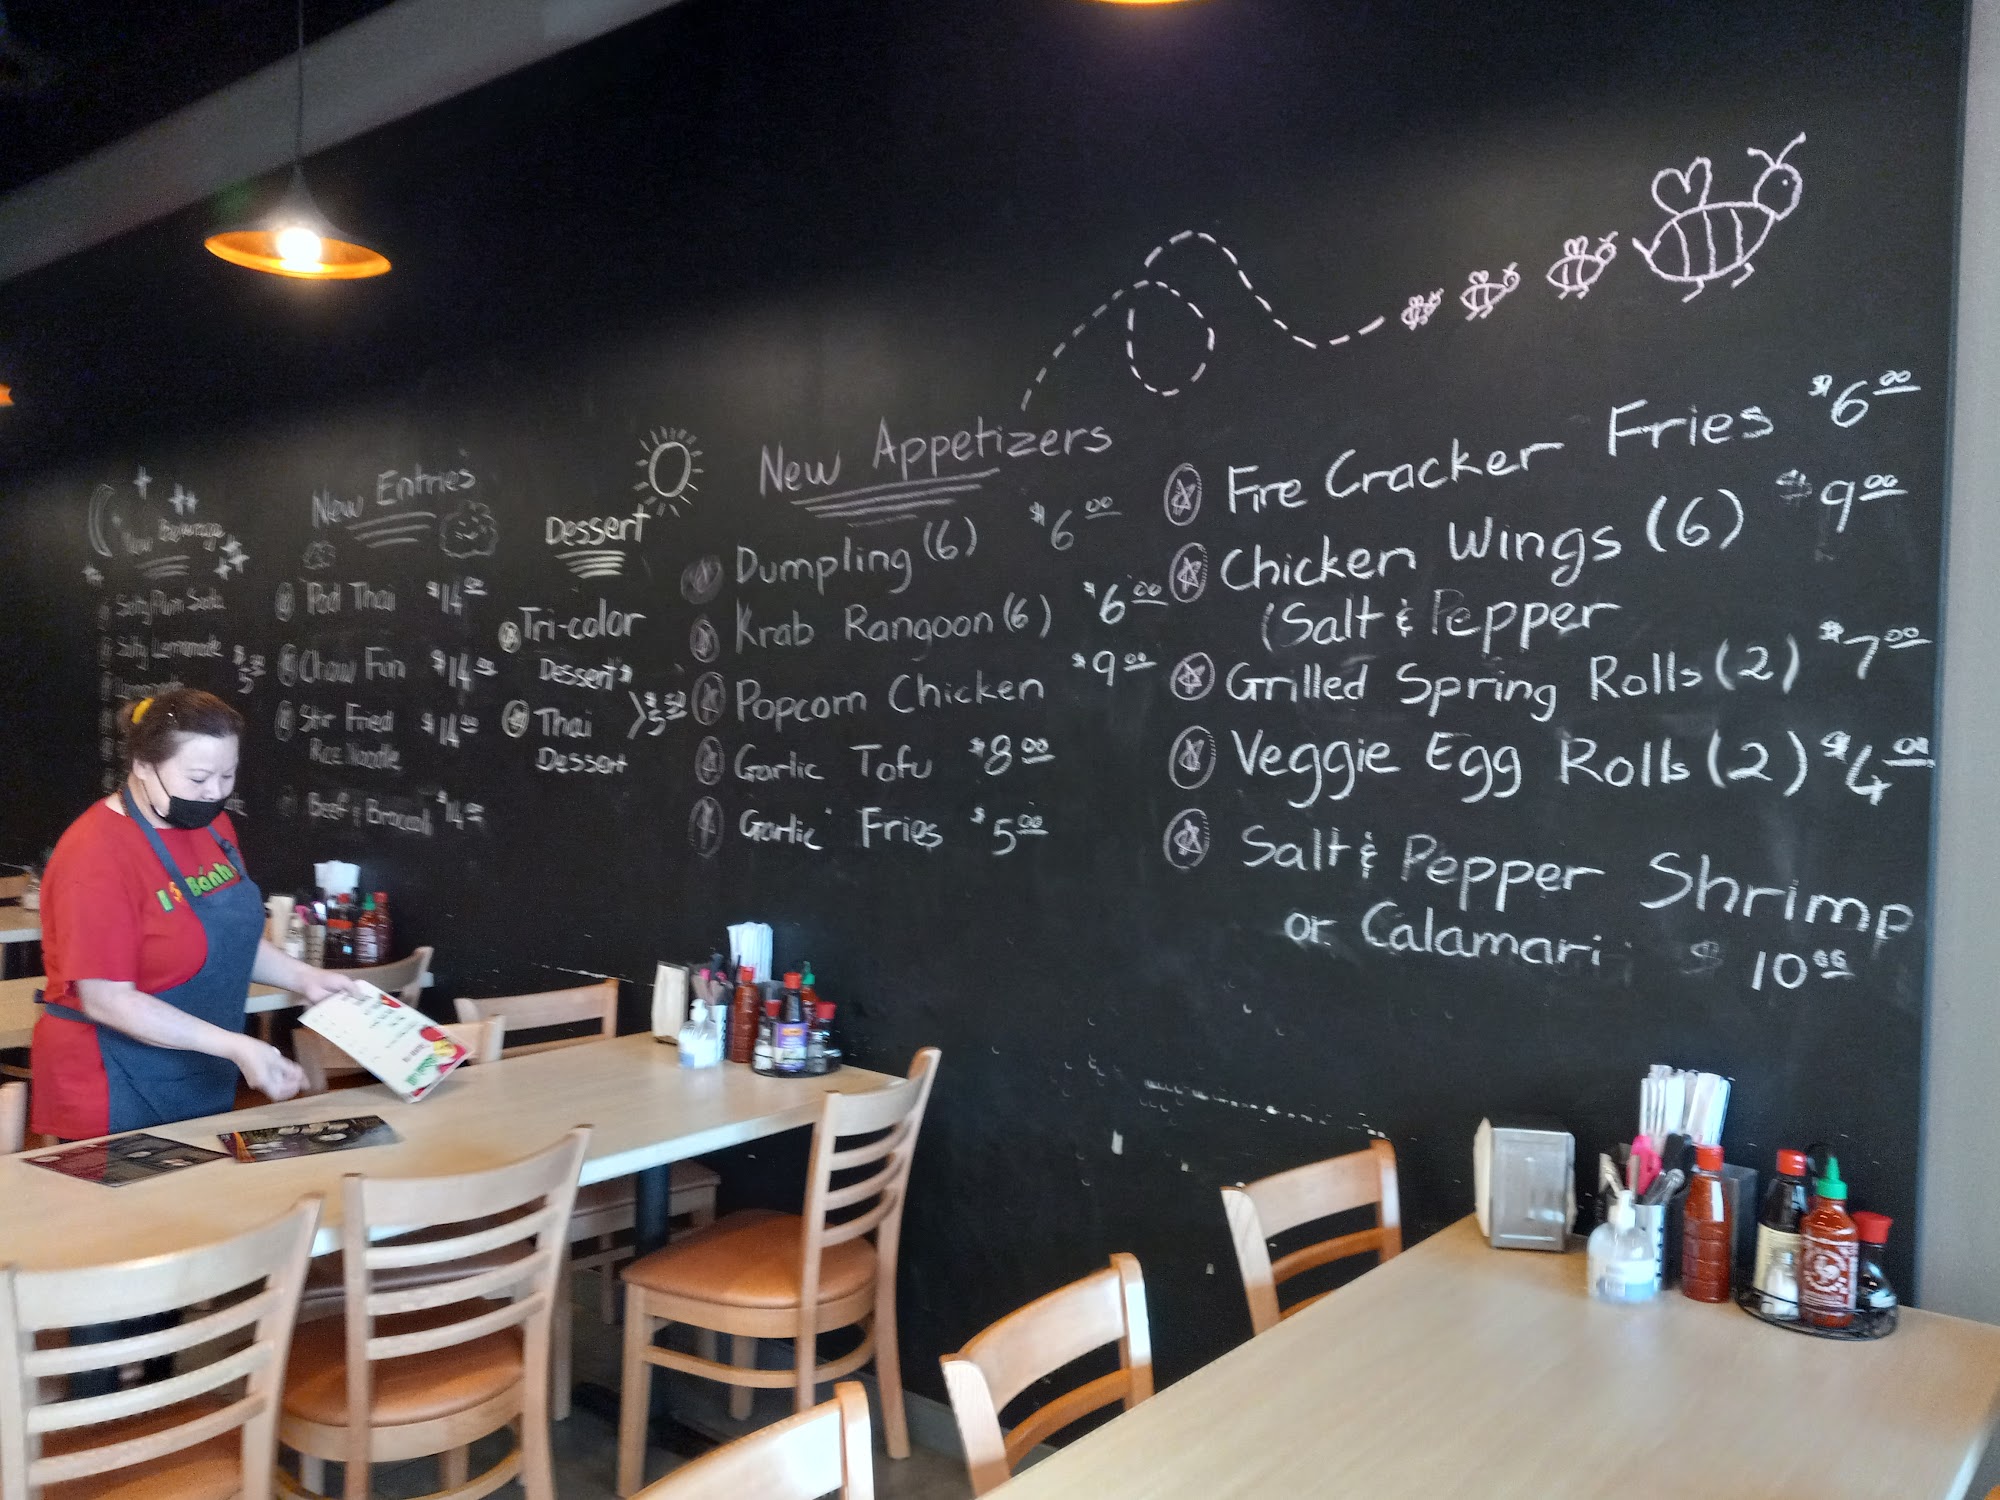 New Beverage
Salty Plum Soda
Salty Lemonade
$5.50
New Entries
Pad Thai $14.00
Chow Fun $14.00
Stir Fried $14.00
Rice Noodle
Beef & Broccoli $14.00
Dessert
Tri-color
Dessert's
Thai
Dessert
$5.50
New Appetizers
Dumpling (6) $6.00
Krab Rangoon (6) $6.00
Popcorn Chicken $9.00
Garlic Tofu $8.00
Garlic Fries $5.00
Fire Cracker Fries $6.00
Chicken Wings (6) $9.00
(Salt & Pepper
Grilled Spring Rolls (2) $7.00
Veggie Egg Rolls (2) $4.00
Salt & Pepper Shrimp
or Calamari $10.00
Bánh